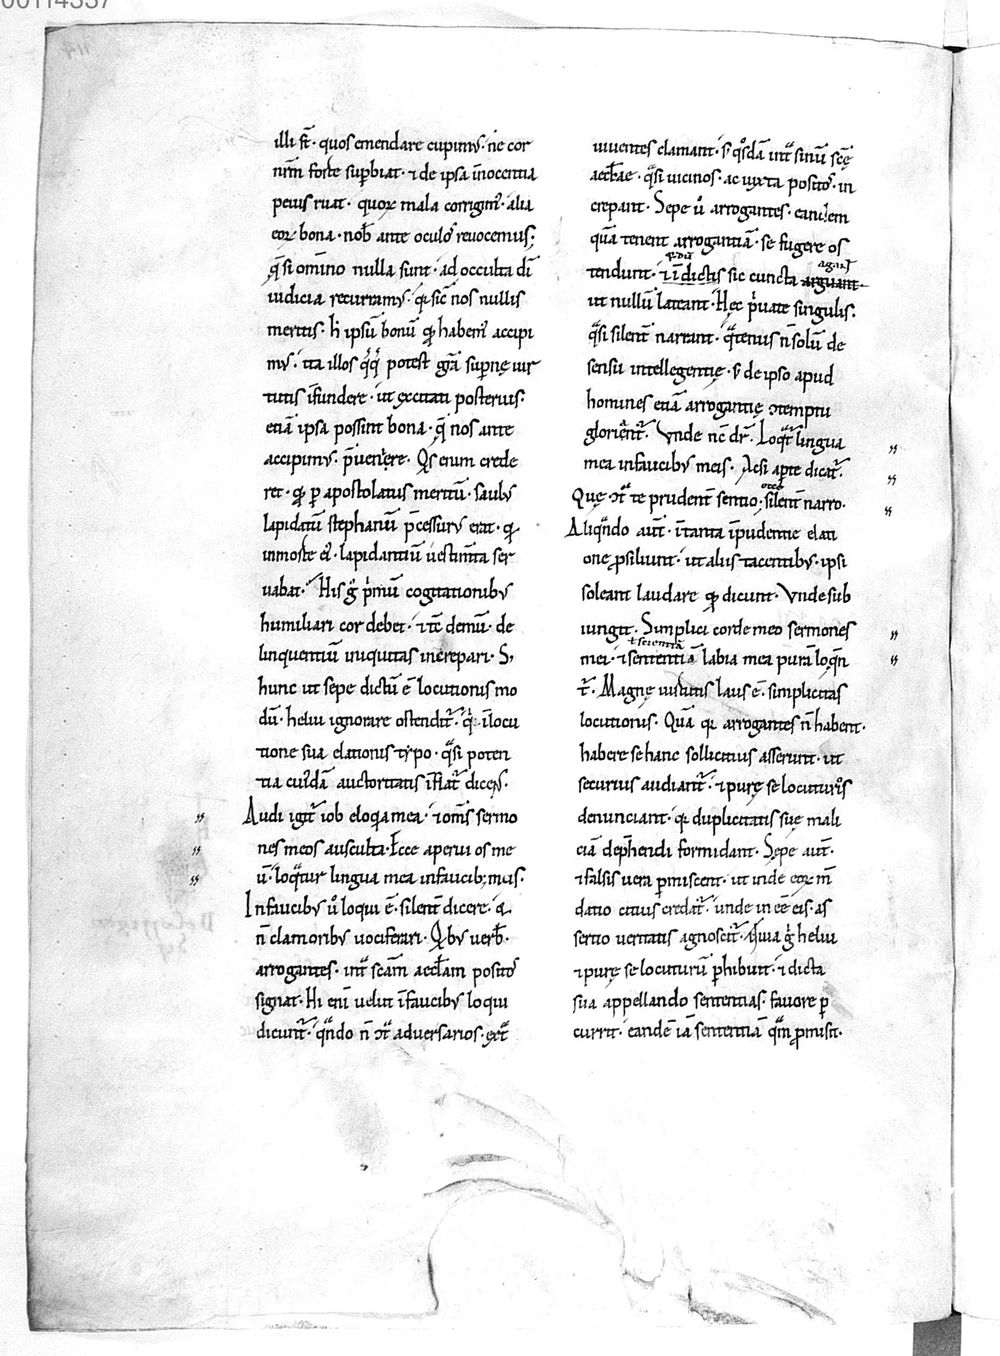 illi st̄. quos emendare cupimꝰ. ne cor
nr̄m forte supbiat. ⁊ de ipsa īnocentia
peius ruat. quoꝝ mala corrigimꝰ. alia
eoꝝ bona. nob̄ ante oculoſ reuocemus;
q̄si om̄ino nulla sunt. ad occulta dī
iudicia recurramꝰ. q̇ sic̄ nos nullis
meritis. h̄ ipsū bonū qḋ habemꝰ accipi
mꝰ. ita illos q̇q̇ potest gr̄a supne uir
tutis īfundere. ut excitati posterius.
etiā ipsa possint bona. q̄ nos ante
accipimꝰ. p̄uenire. Q̇s enim crede
ret. qḋ p apostolatus meritū. saulꝰ
lapidatū stephanū p̄cessurꝰ erat. q̇
in morte eiꝰ. lapidantiū uestim̄ta ser
uabat. His g̊ p̄mū cogitationibꝰ
humiliari cor debet. ⁊ tc̄ demū. de
linquentiū iniquitas increpari. S;
hunc ut sepe dictū ē locutionis mo
dū. heliu ignorare ostendit᷑. q̇ ī locu
tione sua elationis typo. q̄si poten
tia cuiꝰdā auctoritatis īflat᷑ dicens.
Audi igit᷑ iob eloq̇a mea. ⁊ om̄s sermo
nes meos ausculta. Ecce aperui os me
ū. loq̄tur lingua mea in faucib; meis.
In faucibꝰ u̇o loqui ē. silent᷑ dicere. ⁊
n̄ clamoribꝰ uociferari. Q̇bꝰ uerb̄.
arrogantes. int᷑ scām eccl̄am positoſ
signat. Hi eni uelut ī faucibꝰ loqui
dicunt᷑. q̄ndo n̄ ɔt᷑ aduersarios. ext᷑
uiuentes clamant. ſ; q̊sdā int᷑ sinū scē
aeccl̄ae. q̄si uicinos. ac iuxta positoſ. in
crepant. Sepe u̇o arrogantes. eandem
quā tenent arrogantiā. se fugere os
tendunt. ⁊ ī dictis sic cuncta arguant.
ut nullū lateant. Hec p̄uate singulis.
q̄si silent᷑ narrant. q̄tenus n̄ solū de
sensu intellegentie. ſ; de ipso apud
homines etiā arrogantie ɔtemptu
glorient᷑. Vnde nc̄ dr̄. Loq̄t᷑ lingua
mea in faucibꝰ meis. Acsi apte dicat᷑.
Que ɔt᷑ te prudent᷑ sentio. silent᷑ narro.
Aliq̄ndo aut̄. ī tanta īpudentie elati
one psiliunt. ut aliis tacentibꝰ. ipsi
soleant laudare qḋ dicunt. Vnde sub
iungit. Simplici corde meo sermones
mei. ⁊ sententiā labia mea purā loq̄n
t᷑. Magne uirtutis laus ē. simplicitas
locutionis. Quā q̇ arrogantes n̄ habent.
habere se hanc sollicitius asserunt. ut
securius audiant᷑. ⁊ pure se locuturos
denunciant. q̇ duplicitatis sue mali
ciā dep̄hendi formidant. Sepe aut̄.
⁊ falsis uera pmiscent. ut inde eoꝝ m̄
datio citius credat᷑. unde inēē eis. as
sertio ueritatis agnoscit᷑. Quia g̊ heliu
⁊ pure se locuturū phibuit. ⁊ dicta
sua appellando sententias. fauore p
currit. eandē iā sententiā qm̄ pmisit.